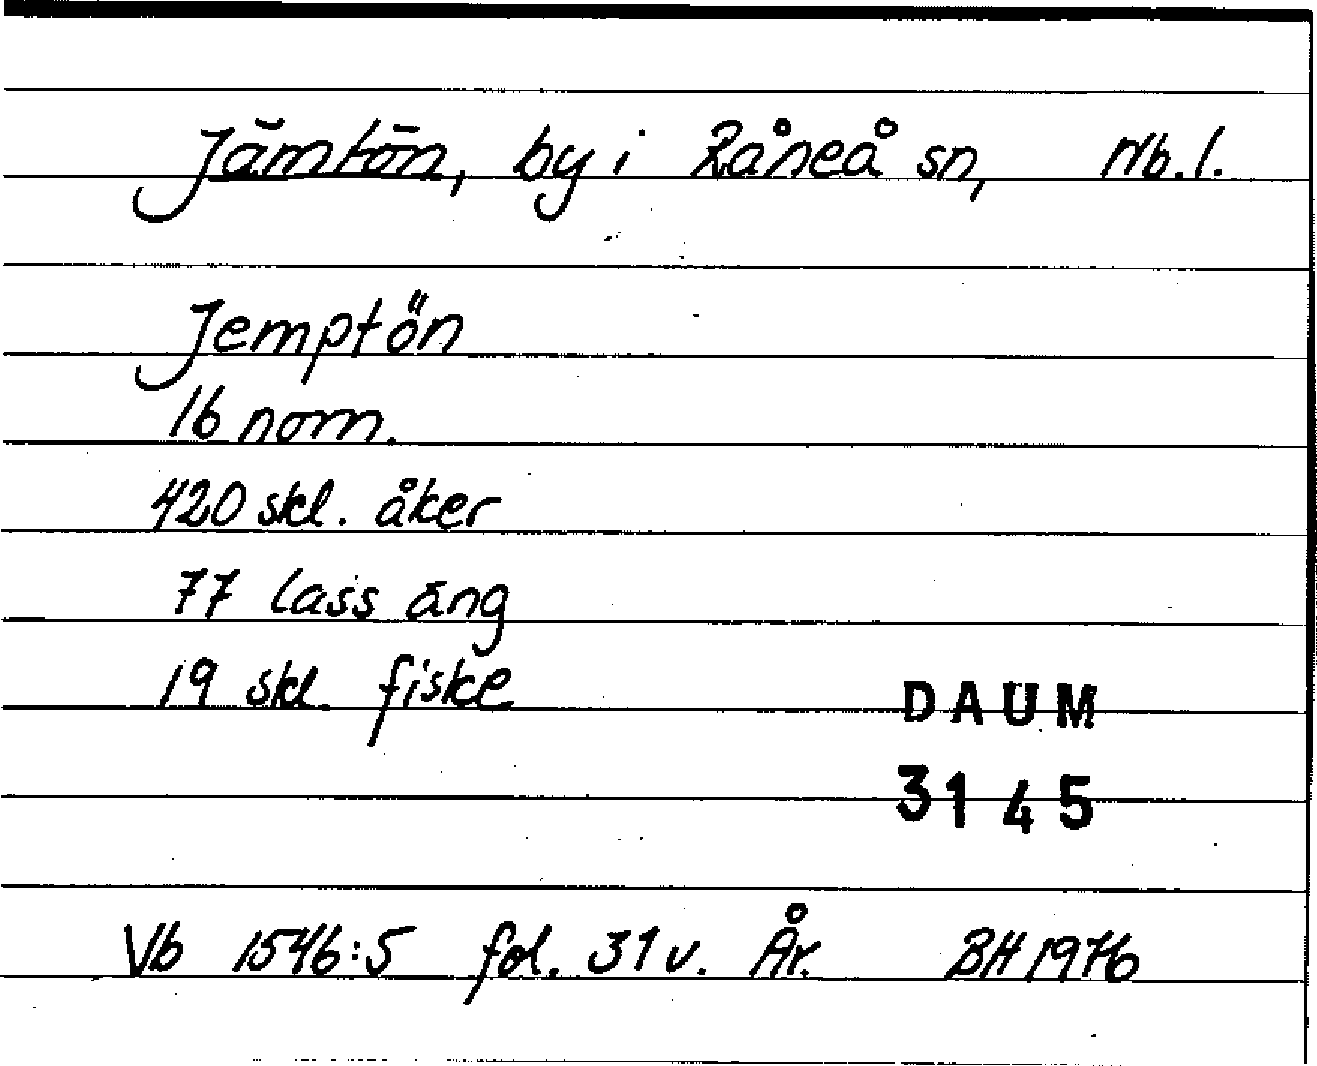 Jämtön, by i Råneå sn, Nb. l.
Jemptön
16 nom.
420 skl. åker
77 lass äng
19 skl. fiske
DAUM
3145
Vb 1546:5 fol. 31 v. År. BH 1976